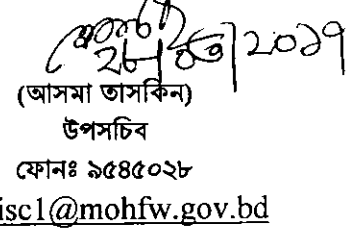 ২০১৭
(আসমা তাসকিন)
উপসচিব
ফোনঃ ৯৫৪৫০২৮
isc1@mohfw.gov.bd